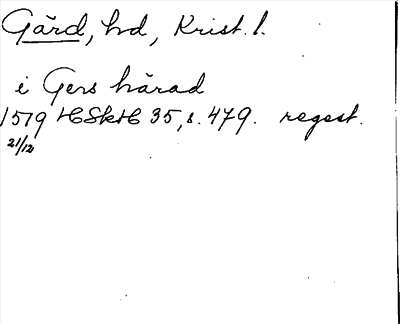 Gärd, hd, Krist. l.
i Gers härad
1519 HSkH 35, s. 479. regest.
21/12